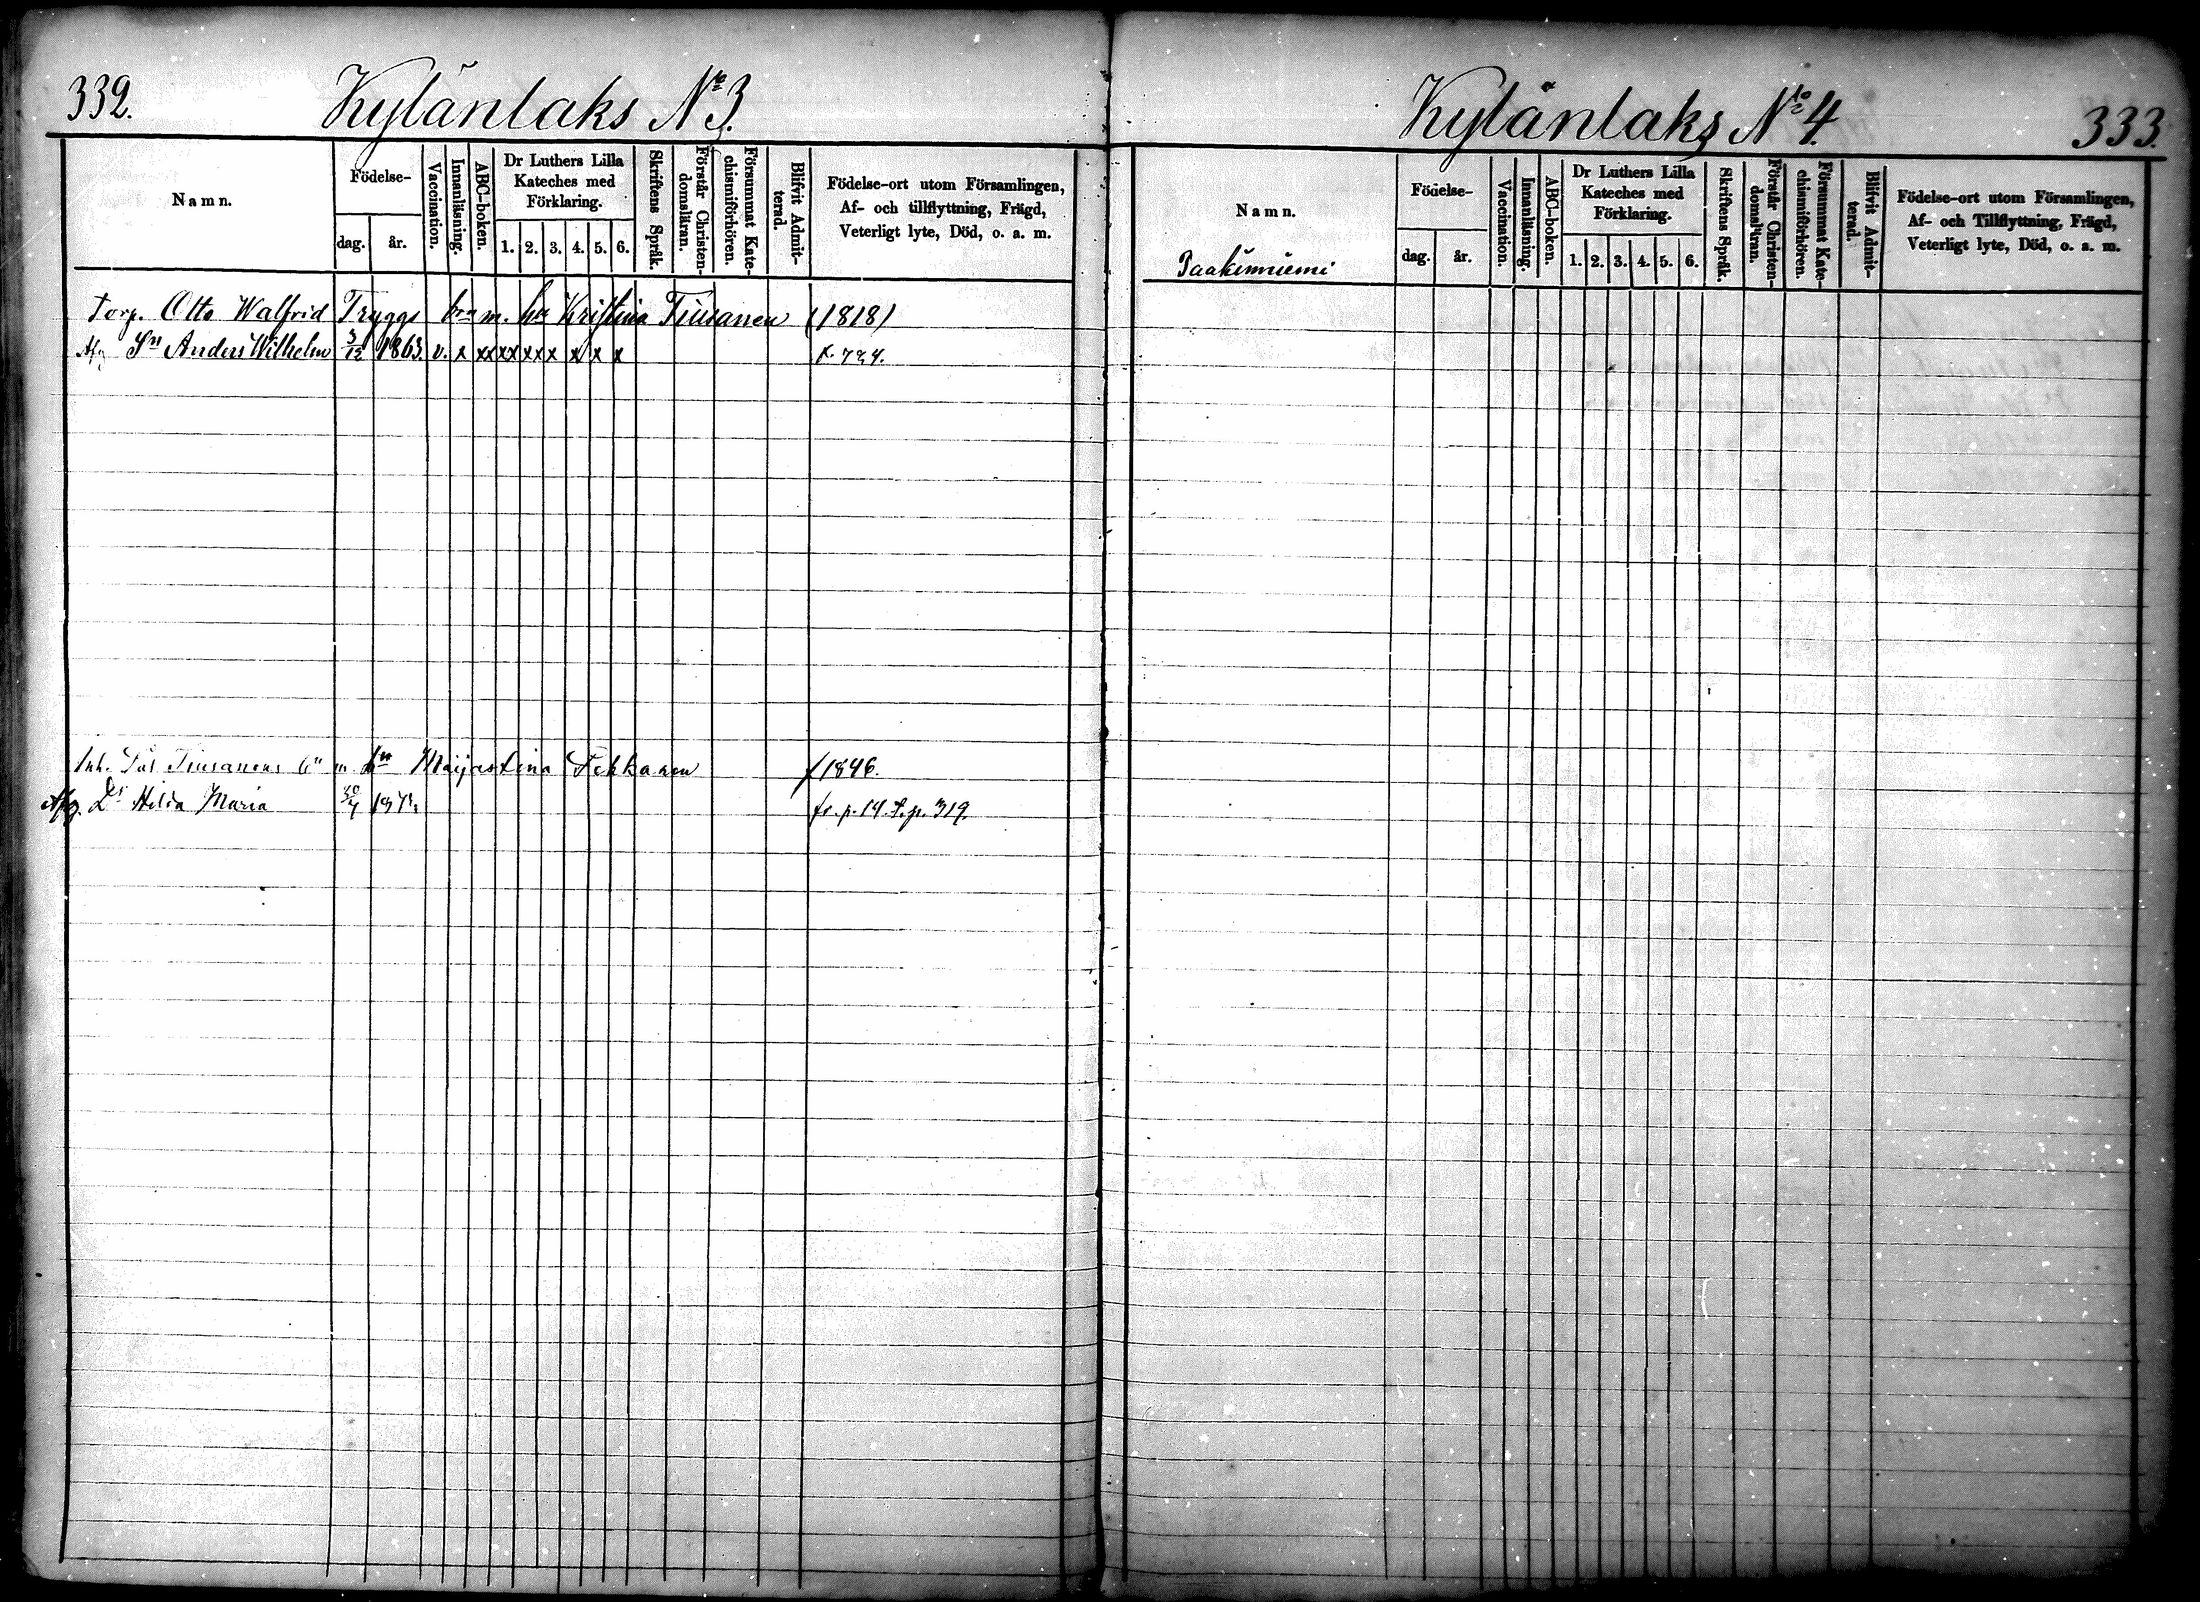 332.
Kylänlaks No 3.
Namn.
Födelse-
dag. år.
Vaccination.
Innanläsning.
ABC-boken.
Dr Luthers Lilla
Kateches med
Förklaring.
1. 2. 3. 4. 5. 6.
Skriftens Språk.
Förstår Christen-
domsläran.
Försummat Kate-
chismiförhören.
Blifvit Admit-
terad.
Födelse-ort utom Församlingen,
Af- och tillflyttning, Frägd,
Veterligt lyte, Död, o. a. m.
Torp. Otto Walfrid Tryggs bn m. hu Kristina Tiusanen (1818)
Afg Sn Anders Wilhelm 3/12 1863. v. x xx xx xx x x x x
Inh. Pål Tiusanens bn m. hu Maijastina Tekkanen f 1846.
Afg. Dr Hilda Maria fr. p. 14. t. p. 319.
Kylänlaks No 4.
333.
Namn.
Paakinniemi
Födelse-
dag. år.
Vaccination.
Innanläsning.
ABC-boken.
Dr Luthers Lilla
Kateches med
Förklaring.
1. 2. 3. 4. 5. 6.
Skriftens Språk.
Förstår Christen-
domsläran.
Försummat Kate-
chismiförhören.
Blifvit Admit-
terad.
Födelse-ort utom Församlingen,
Af- och Tillflyttning, Frägd,
Veterligt lyte, Död, o. a. m.